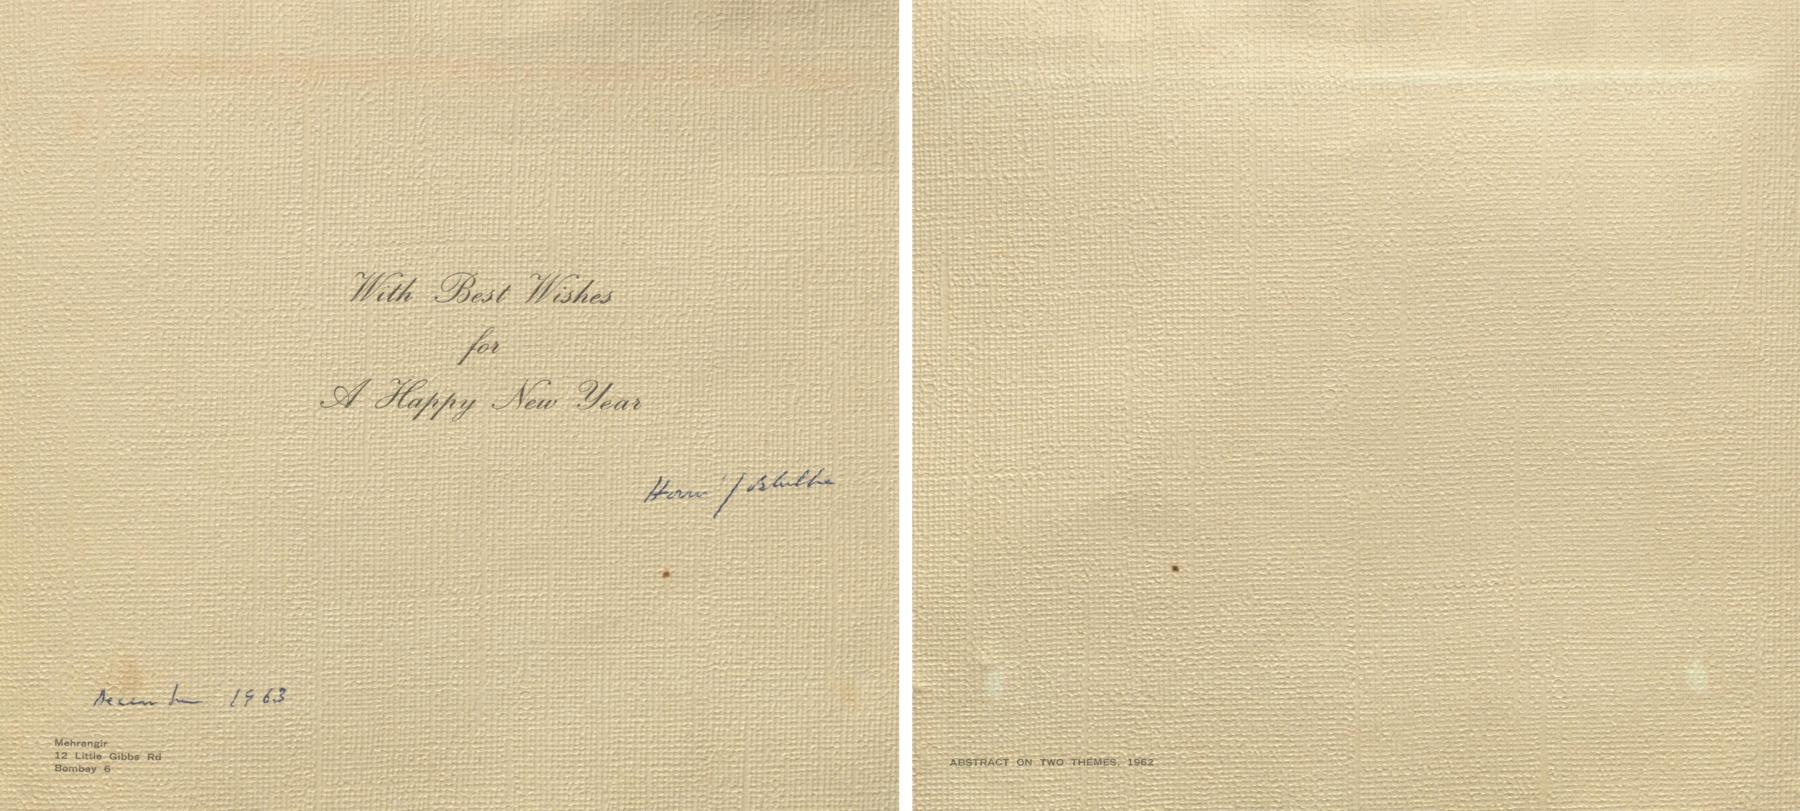 With Best Wishes
for
A Happy New Year
Homi J Bhabha
December 1963
Mehrangir
12 Little Gibbs Rd
Bombay 6
ABSTRACT ON TWO THEMES, 1962